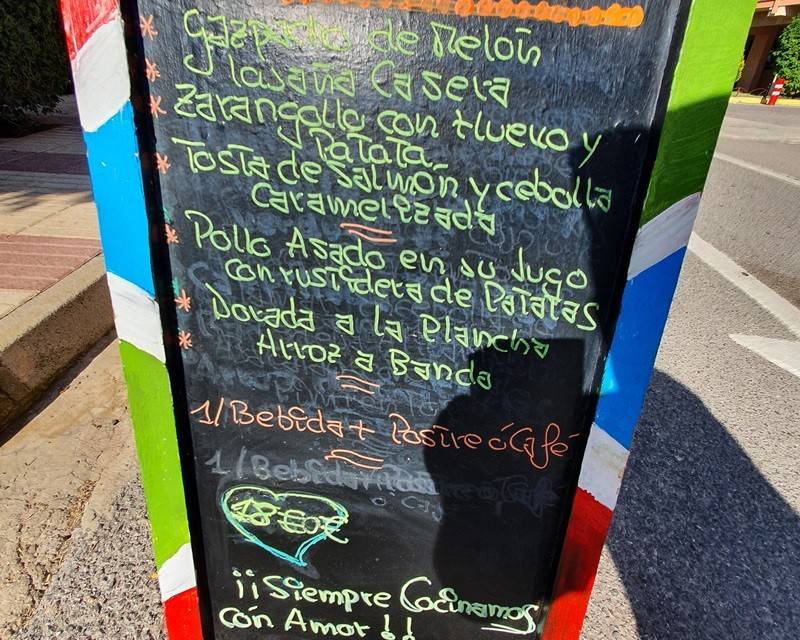 Gazpacho de Melón
y lasaña Casera
Zarangollo con Huevo y
Patata
Tosta de Salmón y cebolla
Caramelizada
Pollo Asado en su Jugo
con rustidera de Patatas
Dorada a la Plancha
Arroz a Banda
1/Bebida + Postre ó Café
1/Bebida
18 €
¡¡Siempre Cocinamos
cón Amor!!